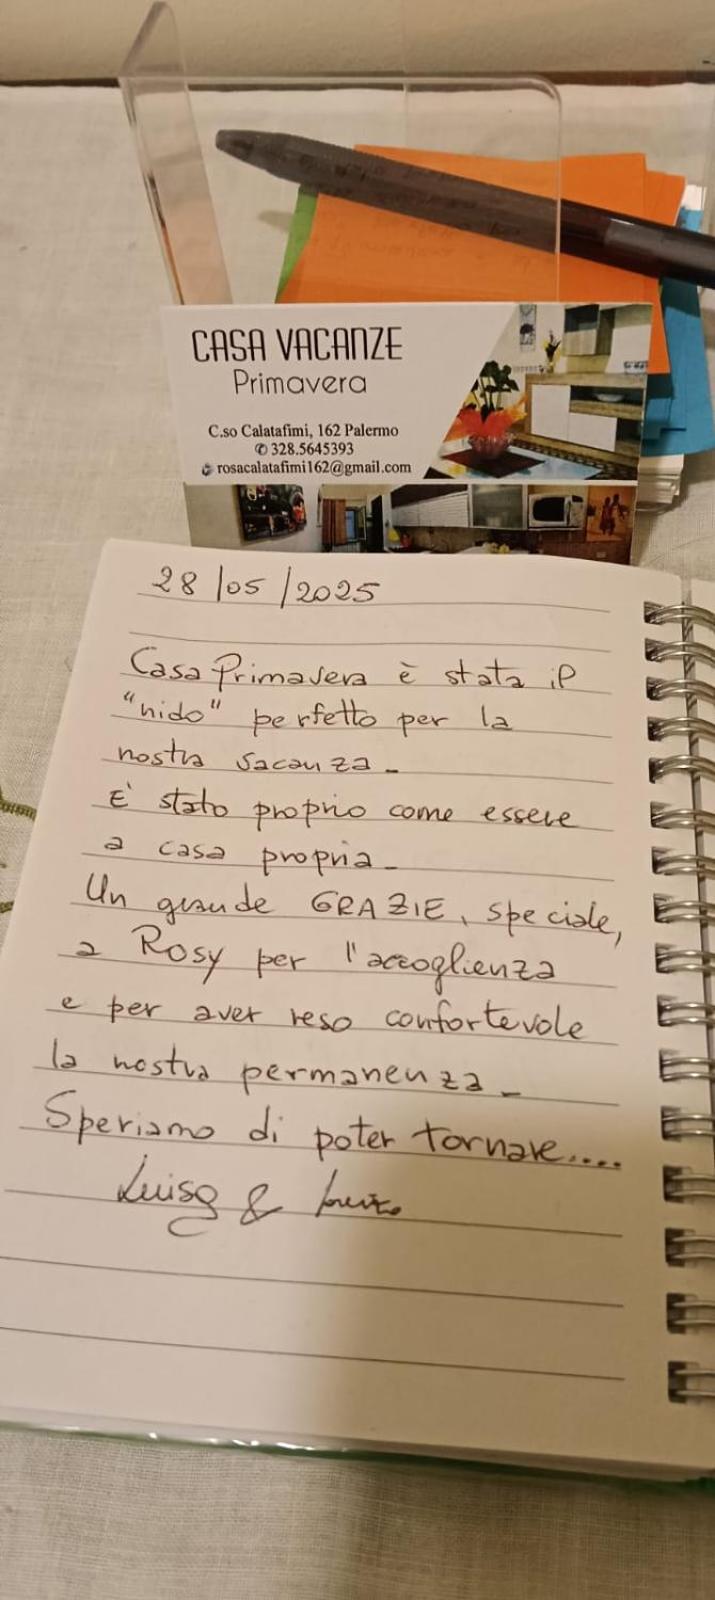 CASA VACANZE
Primavera
C.so Calatafimi, 162 Palermo
✆ 328.5645393
rosacalatafimi162@gmail.com
28/05/2025
Casa Primavera è stata il
"nido" perfetto per la
nostra vacanza_
E' stato proprio come essere
a casa propria_
Un grande GRAZIE, speciale,
a Rosy per l'accoglienza
e per aver reso confortevole
la nostra permanenza_
Speriamo di poter tornare....
Luisa &